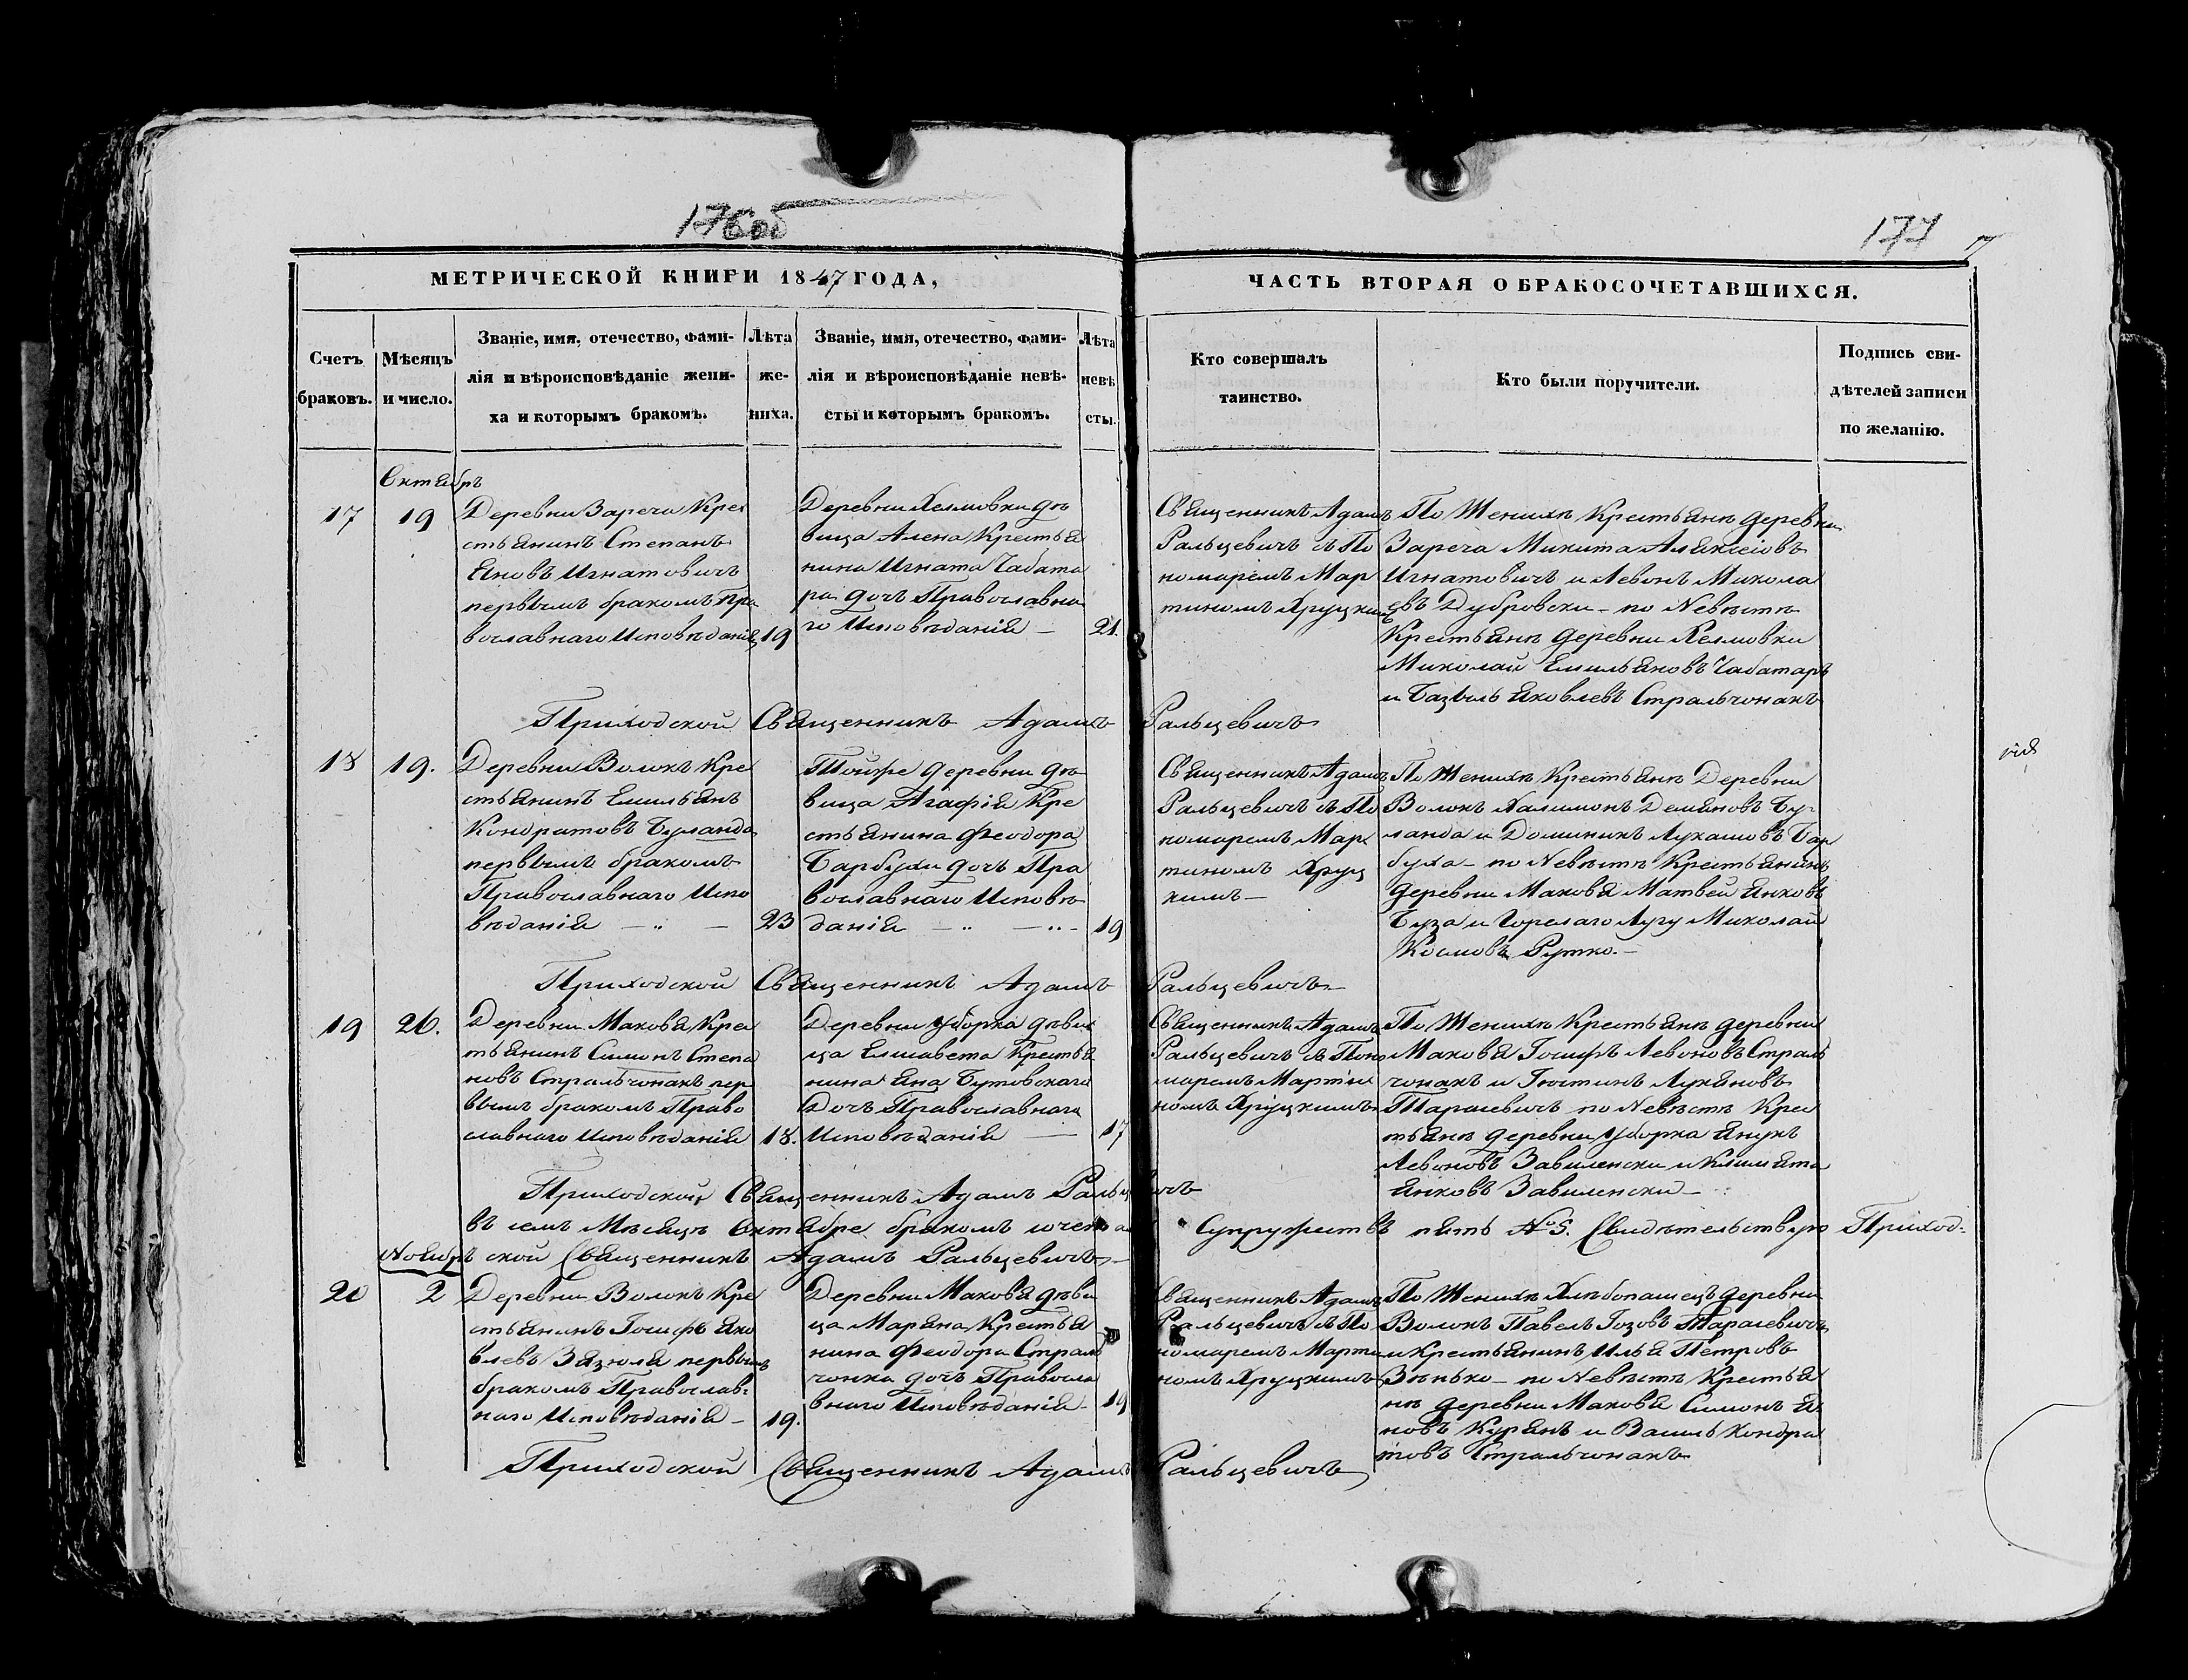 176об
177
МЕТРИЧЕСКОЙ КНИГИ 1847 ГОДА,
ЧАСТЬ ВТОРАЯ О БРАКОСОЧЕТАВШИХСЯ.
Счетъ
браковъ.
Мѣсяцъ
и число.
Званіе, имя, отечество, фами-
лія и вѣроисповѣданіе жени-
ха и которымъ бракомъ.
Лѣта
же-
ниха.
Званіе, имя, отечество, фами-
лія и вѣроисповѣданіе невѣ-
сты и которымъ бракомъ.
Лѣта
невѣ
сты.
Кто совершалъ
таинство.
Кто были поручители.
Подпись сви-
дѣтелей записи
по желанію.
Октябръ
17
19
Деревни Зареча Крес
стьянинъ Степанъ
Яновъ Игнатовичъ
первымъ бракомъ Пра
вославнаго Исповѣданія
19
Деревни Хелмовки дѣ
вица Алена Крестья
нина Игната Чабата
ра дочъ Православна
го Исповѣданія —
21.
Священникъ Адамъ
Ральцевичъ съ По
номаремъ Мар
тиномъ Хруцкимъ
По Женихѣ Крестьянѣ деревни
Зареча Микита Алексіовъ
Игнатовичъ и Левонъ Микола
евъ Дубровски — по Невѣстѣ
Крестьянѣ деревни Хелмовки
Миколай Емильяновъ Чабатаръ
и Базыль Яковлевъ Стральчонакъ
Приходской Священникъ Адамъ Ральцевичъ
18
19.
Деревни Волокъ Кре
стьянинъ Емильянъ
Кондратовъ Буланда
первымъ бракомъ
Православнаго Испо
вѣданія — „ —
23
Тойже деревни дѣ
вица Агафія Кре
стьянина Феодора
Барбухи дочъ Пра
вославнаго Исповѣ
данія — „ —
19
Священникъ Адамъ
Ральцевичъ съ По
номаремъ Мар
тиномъ Хруц
кимъ —
По Женихѣ Крестьянѣ Деревни
Волокъ Халимонъ Демяновъ Бу-
ланда и Доминикъ Лукашовъ Бар
буха — по Невѣстѣ Крестьянинѣ
деревни Маковя Матвей Янковъ
Буза и Горелаго Лугу Миколай
Космовъ Рутко. —
Приходской Священникъ Адамъ Ральцевичъ —
19
26.
Деревни Маковя Крес
тьянинъ Симонъ Степа
новъ Стральчонакъ пер
вымъ бракомъ Право
славнаго Исповѣданія
18.
Деревни Уборка дѣви
ца Елисавета Крестья
нина Яна Бутовскаго
Дочъ Православнаго
Исповѣданія —
17
Священникъ Адамъ
Ральцевичъ съ Поно
маремъ Марти
номъ Хруцкимъ
По Женихѣ Крестьянѣ деревни
Маковя Іосифъ Левоновъ Страль
чонакъ и Іюстинъ Лукяновъ
Тарасевичъ по Невѣстѣ Крес
тьянѣ деревни Уборка Янукъ
Левоновъ Завиленски и Климята
Янковъ Завиленски —
Приходской Священникъ Адамъ
въ семъ Мѣсяцѣ Октябре бракомъ
Супружествъ пять №5. Свидѣтельствую Приход-
ской Священникъ Адамъ Ральцевичъ —
Ноябръ
20
2
Деревни Волокъ Кре
стьянинъ Іосифъ Яко
влевъ Зязюля первымъ
бракомъ Православ-
наго Исповѣданія —
19.
Деревни Маковя дѣви
ца Маряна Крестья
нина Феодора Страль
чонка дочъ Правосла
внаго Исповѣданія —
19
Священникъ Адамъ
Ральцевичъ съ По
номаремъ Марти
номъ Хруцкимъ
По Женихѣ Хлѣбопашецъ деревни
Волокъ Павелъ Іозовъ Тарасевичъ
и Крестьянинъ Илья Петровъ
Зѣнько — по Невѣстѣ Крестья
нѣ деревни Маковя Симонъ Я
новъ Курянъ и Василь Кондра
товъ Стральчонакъ
Приходской Священникъ Адамъ Ральцевичъ